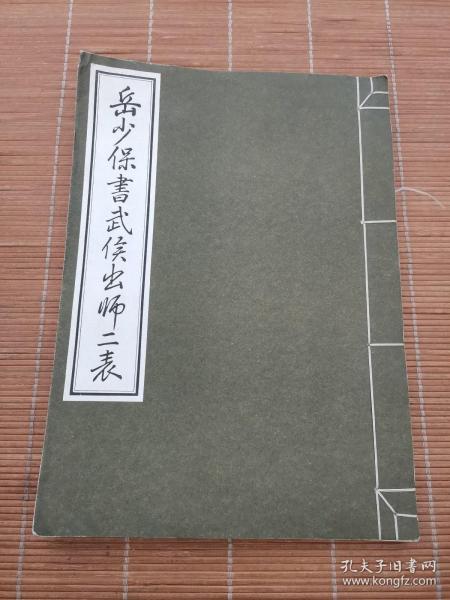 岳少保書武侯出师二表
孔夫子旧书网
www.kongfz.com